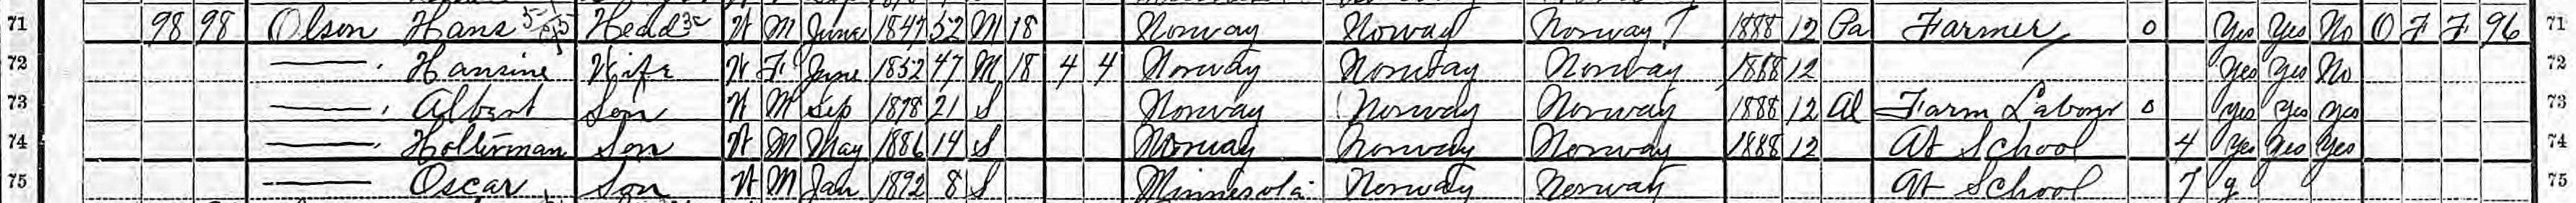 71 98 98 Olson Hans Head W M June 1847 52 M 18 Norway Norway Norway 1888 12 Pa Farmer 0 Yes Yes No O F F 96 71
72 —— Hansine Wife W F June 1852 47 M 18 4 4 Norway Norway Norway 1888 12 Yes Yes No 72
73 —— Albert Son W M Sep 1878 21 S Norway Norway Norway 1888 12 Al Farm Labor 0 Yes Yes Yes 73
74 —— Holterman Son W M May 1886 14 S Norway Norway Norway 1888 12 At School 4 Yes Yes Yes 74
75 —— Oscar Son W M Jan 1892 8 S Minnesota Norway Norway At School 7 y 75